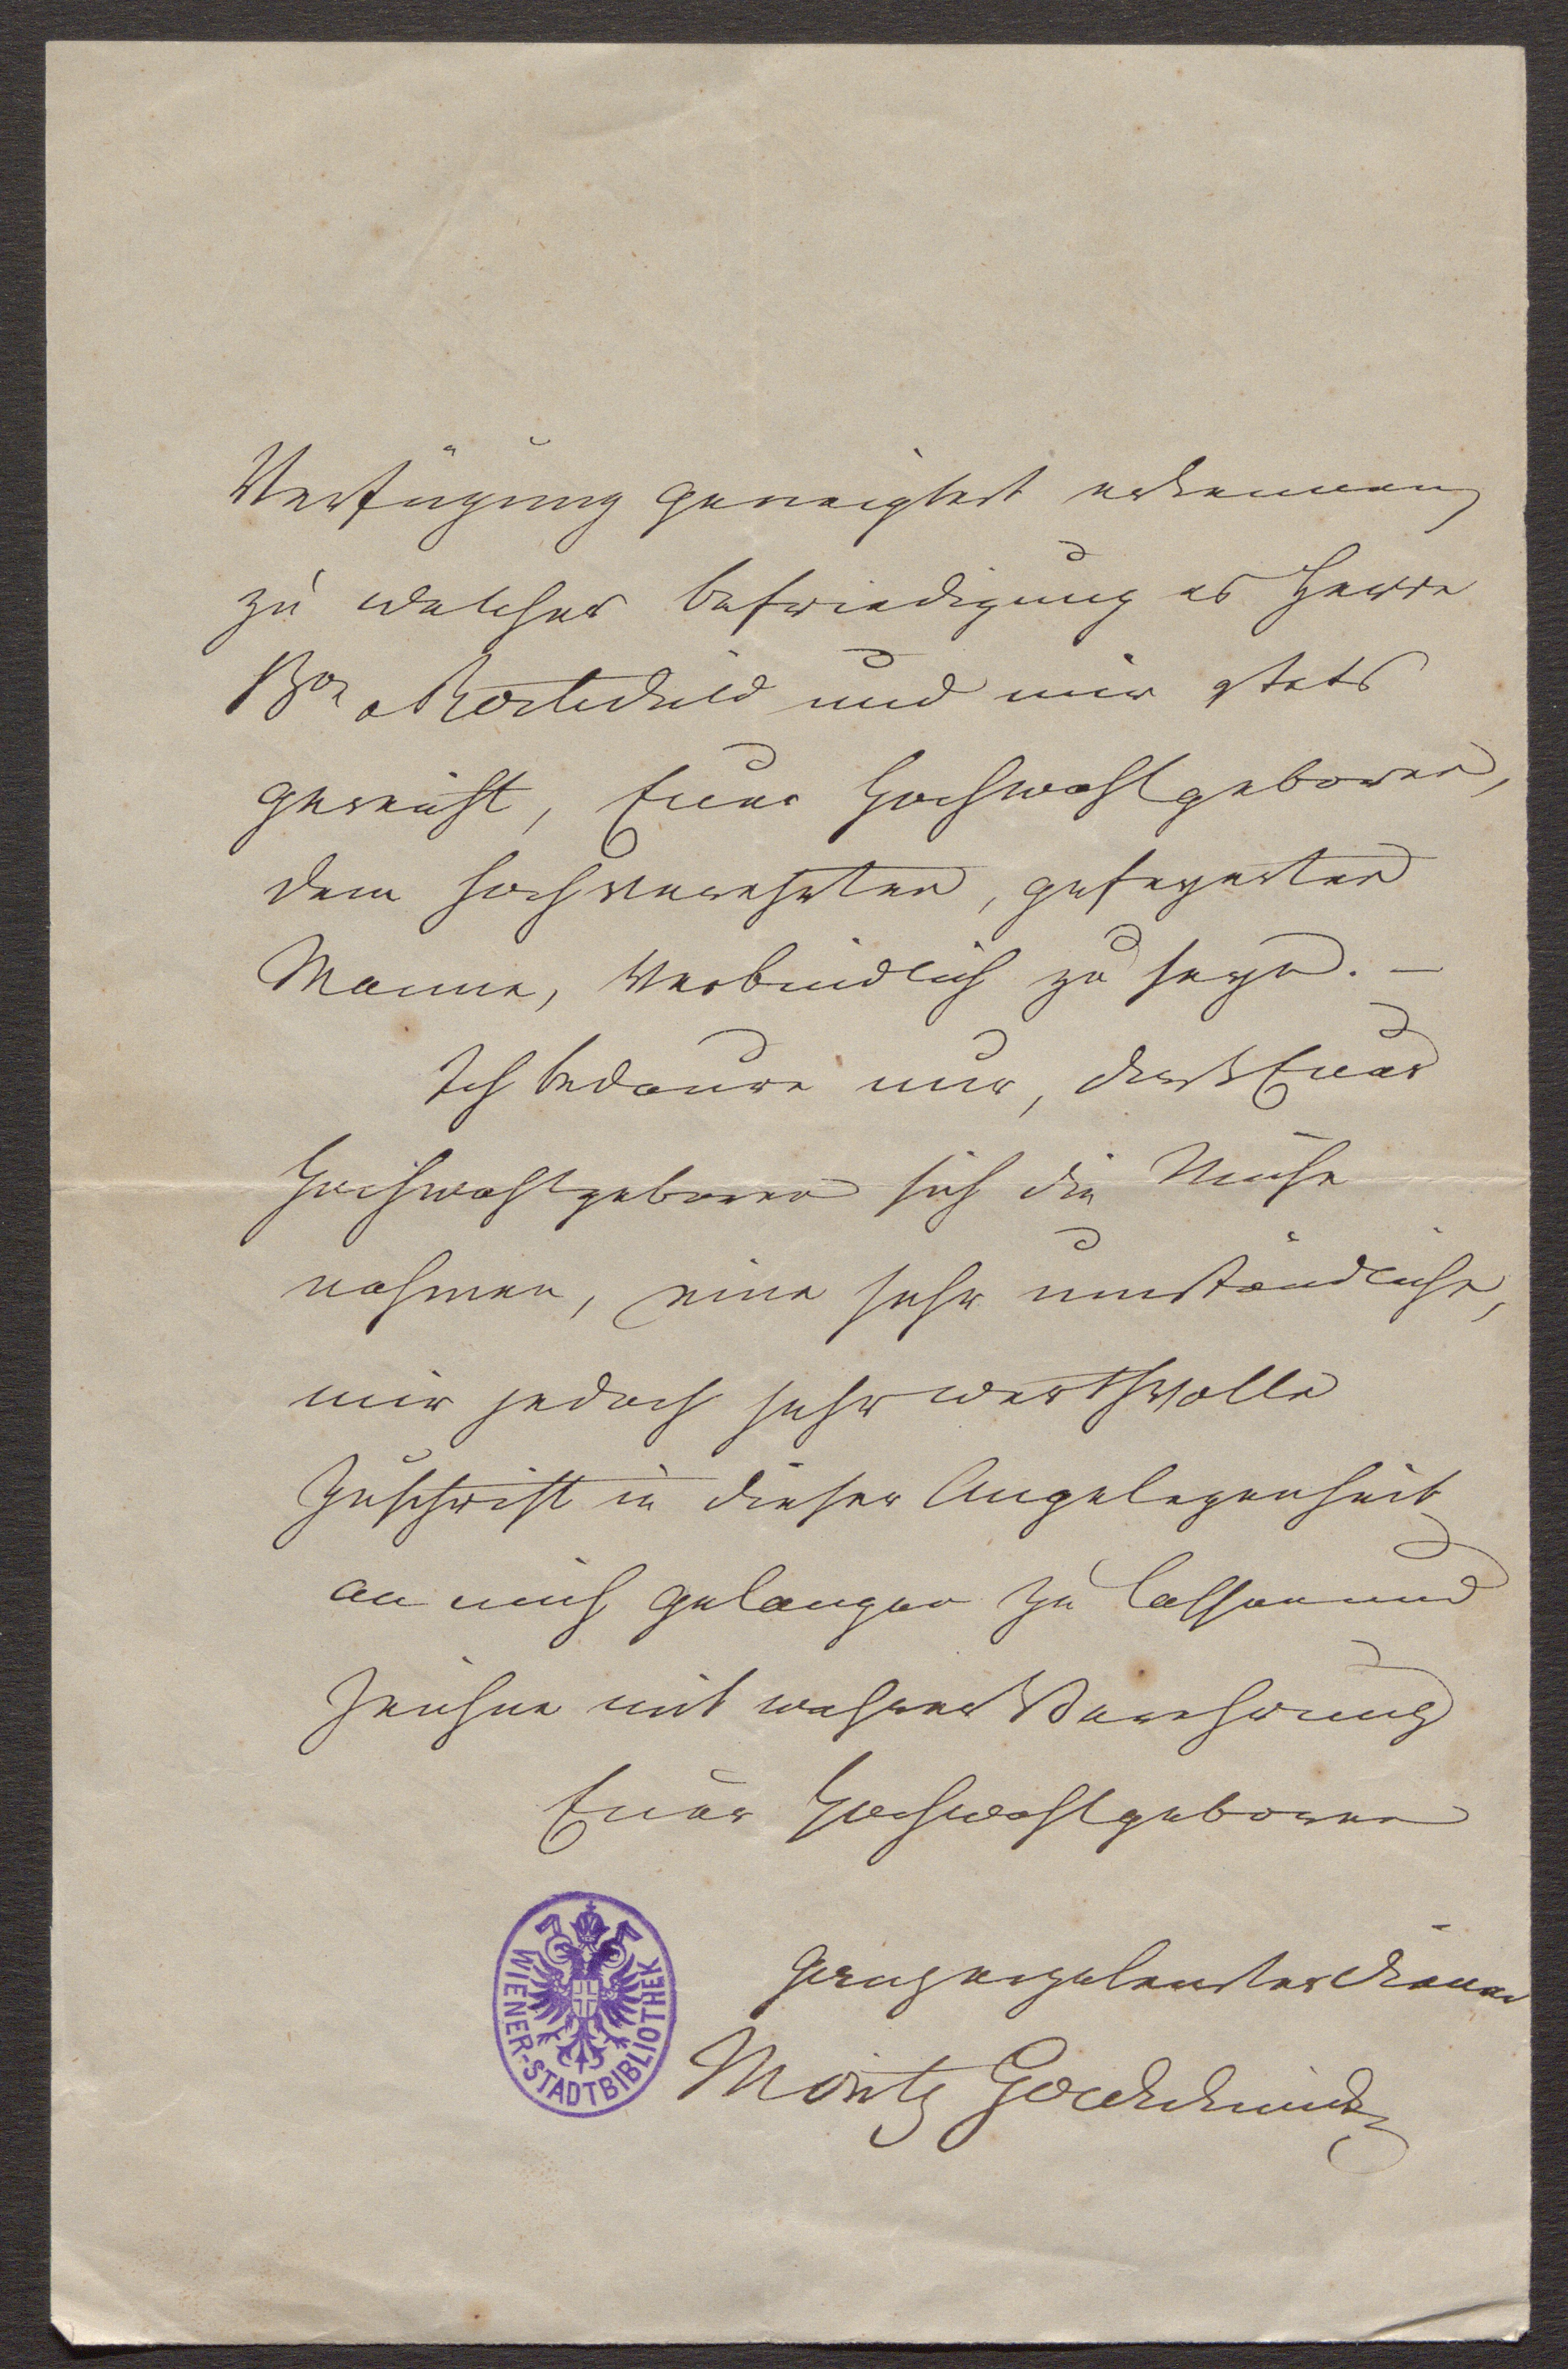 Verfügung geneigtest erkennen,
zu welcher Befriedigung es Herrn
Bon Rothschild und mir stets
gereicht, Euer Hochwohlgeboren,
dem hochverehrten, gefeyerten
Manne, verbindlich zu seyn. –
Ich bedaure nur, dass Euer
Hochwohlgeboren sich die Mühe
nahmen, eine sehr umständliche,
mir jedoch sehr werthvolle
Zuschrift in dieser Angelegenheit
an mich gelangen zu lassen und
zeichne mit wahrer Verehrung
Euer Hochwohlgeboren
ganz ergebenster Diener
Moritz Goldschmidt
WIENER-STADTBIBLIOTHEK